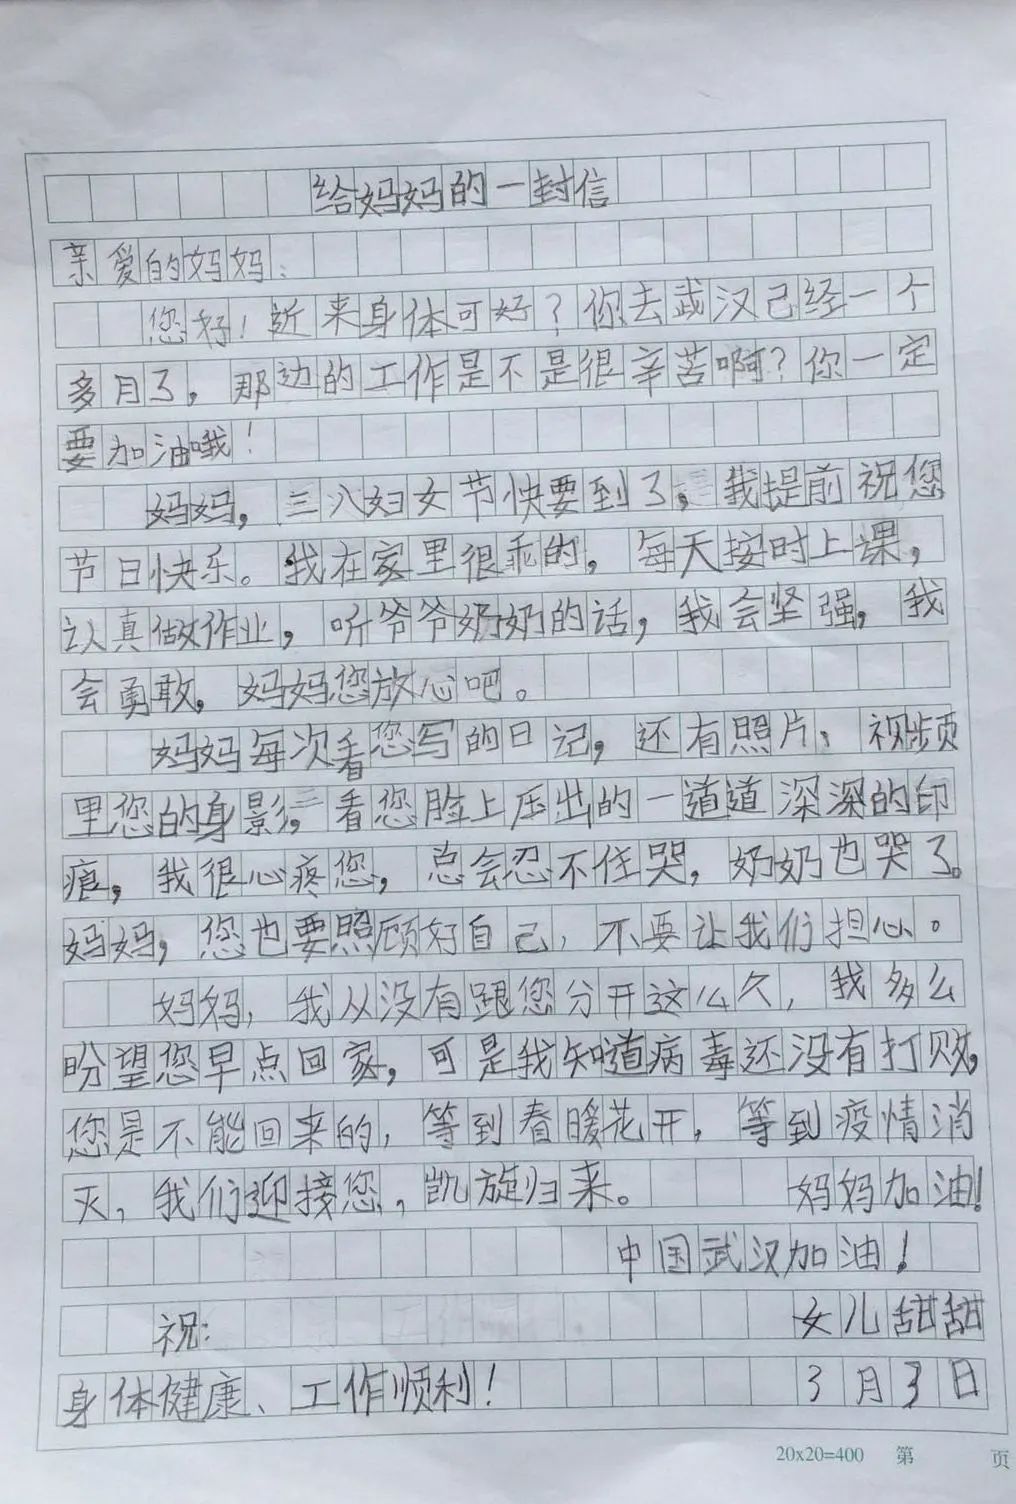 给妈妈的一封信
亲爱的妈妈：
您好！近来身体可好？你去武汉已经一个
多月了，那边的工作是不是很辛苦啊？你一定
要加油哦！
妈妈，三八妇女节快要到了，我提前祝您
节日快乐。我在家里很乖的，每天按时上课，
认真做作业，听爷爷奶奶的话，我会坚强，我
会勇敢，妈妈您放心吧。
妈妈每次看您写的日记，还有照片，视频
里您的身影，看您脸上压出的一道道深深的印
痕，我很心疼您，总会忍不住哭，奶奶也哭了。
妈妈，您也要照顾好自己，不要让我们担心。
妈妈，我从没有跟您分开这么久，我多么
盼望您早点回家，可是我知道病毒还没有打败，
您是不能回来的，等到春暖花开，等到疫情消
灭，我们迎接您，凯旋归来。 妈妈加油！
中国武汉加油！
祝： 女儿甜甜
身体健康、工作顺利！ 3月3日
20x20=400 第 页